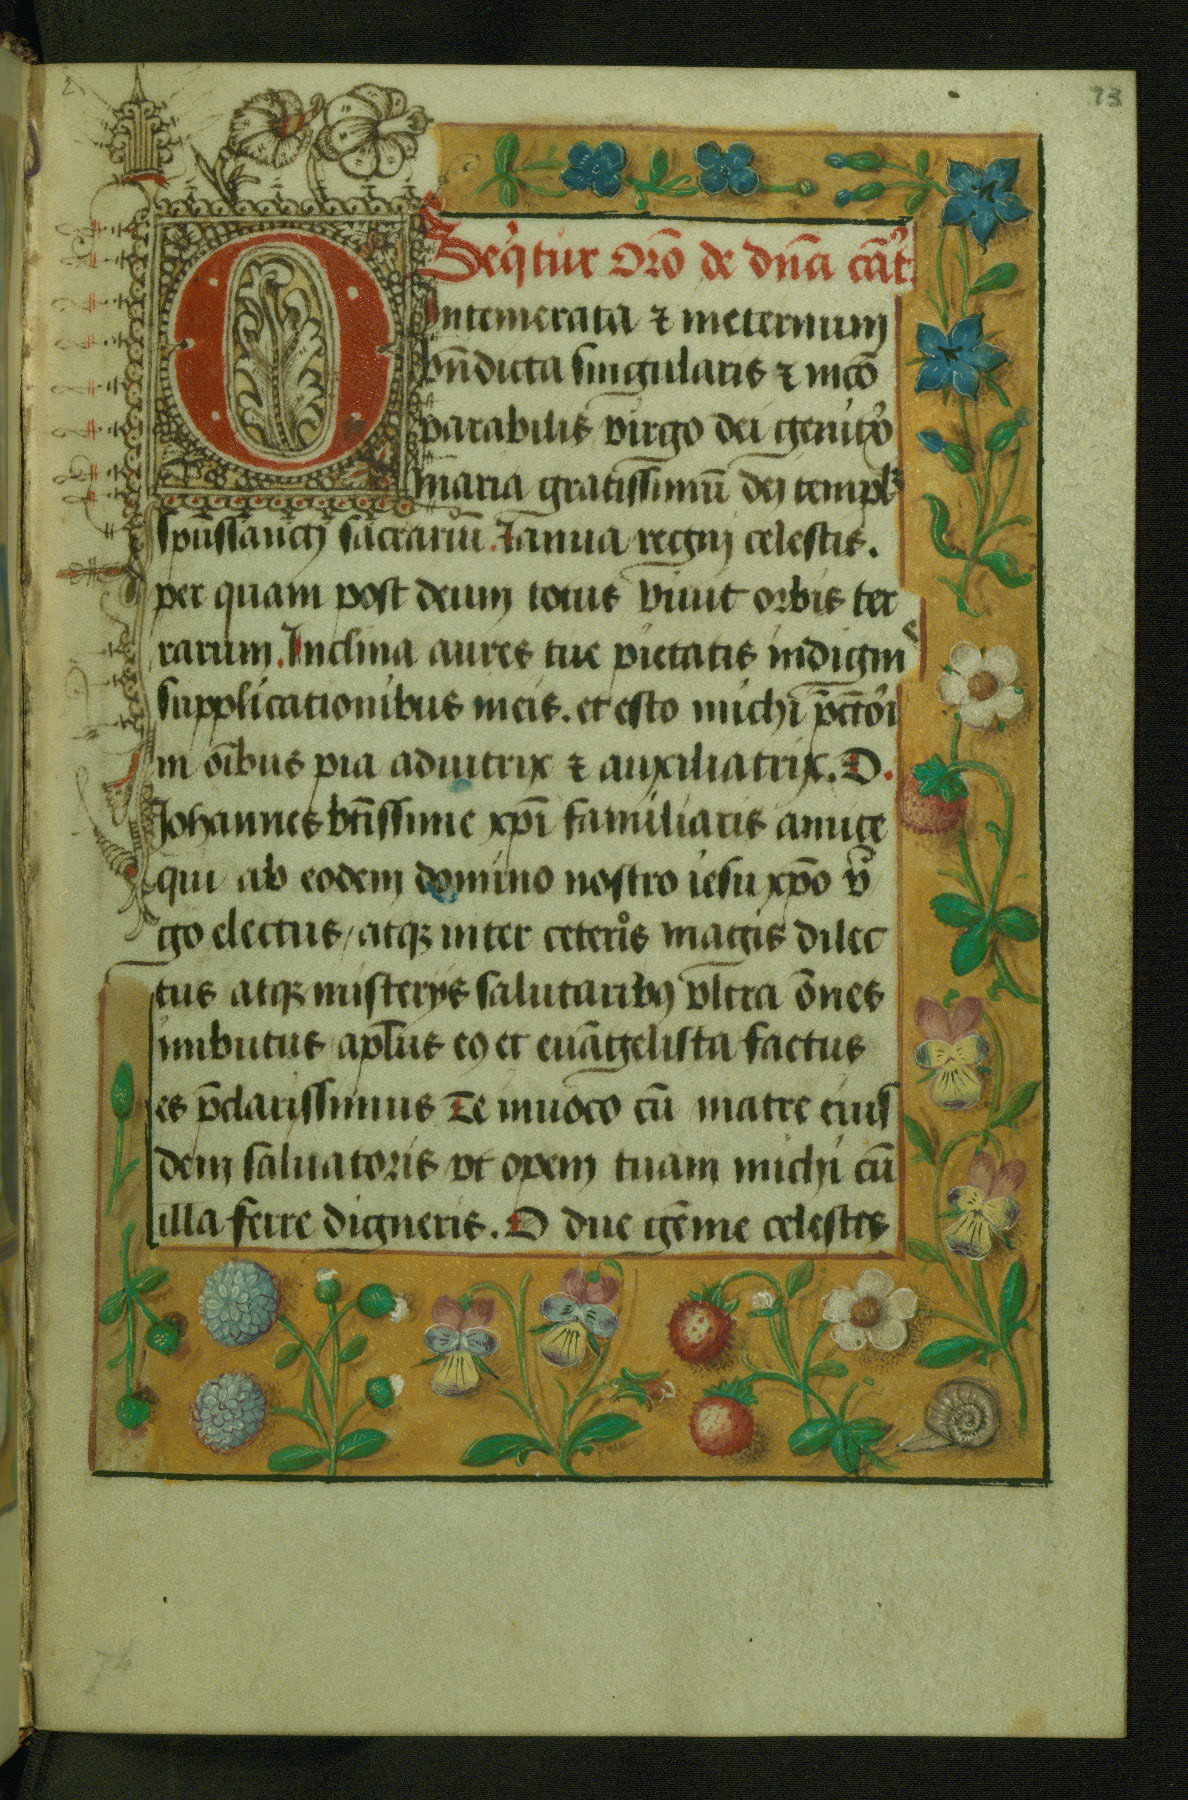 73
Seq̃tur orõ de dñã cãr̃
O Intemerata ⁊ ineternum
bñdicta singularis ⁊ incõ
parabilis virgo dei genitrix
maria gratissimũ dej templũ
spũssanctj sacrariũ. Ianua regnj celestis.
per quam post deum totus viuit orbis ter
rarum. Inclina aures tue pietatis indignis
supplicationibus meis. et esto michi pc̃tõri
in oĩbus pia adiutrix ⁊ auxiliatrix. O.
Johannes bt̃issime xp̃i familiaris amice
qui ab eodem domino nostro iesu xp̃o vir
go electus / atqꝫ inter ceteros magis dilec
tus atqꝫ misterijs salutaribꝯ vltra õnes
imbutus apl̃us eꝯ et euãgelista factus
es p̃clarissimus Te inuoco cũ matre eius
dem saluatoris vt opem tuam michi cũ
illa ferre digneris. O due gẽme celestes
74